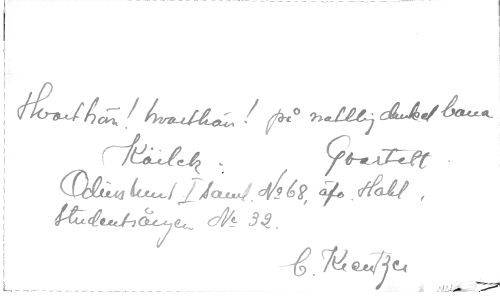 Hvarthän! hvarthän! på nattlig dunkel bana
Körlek. Qvartett.
Odinslund I saml. No 68, äfv. Hæhl,
Studentsången No 32.
C. Kreutzer